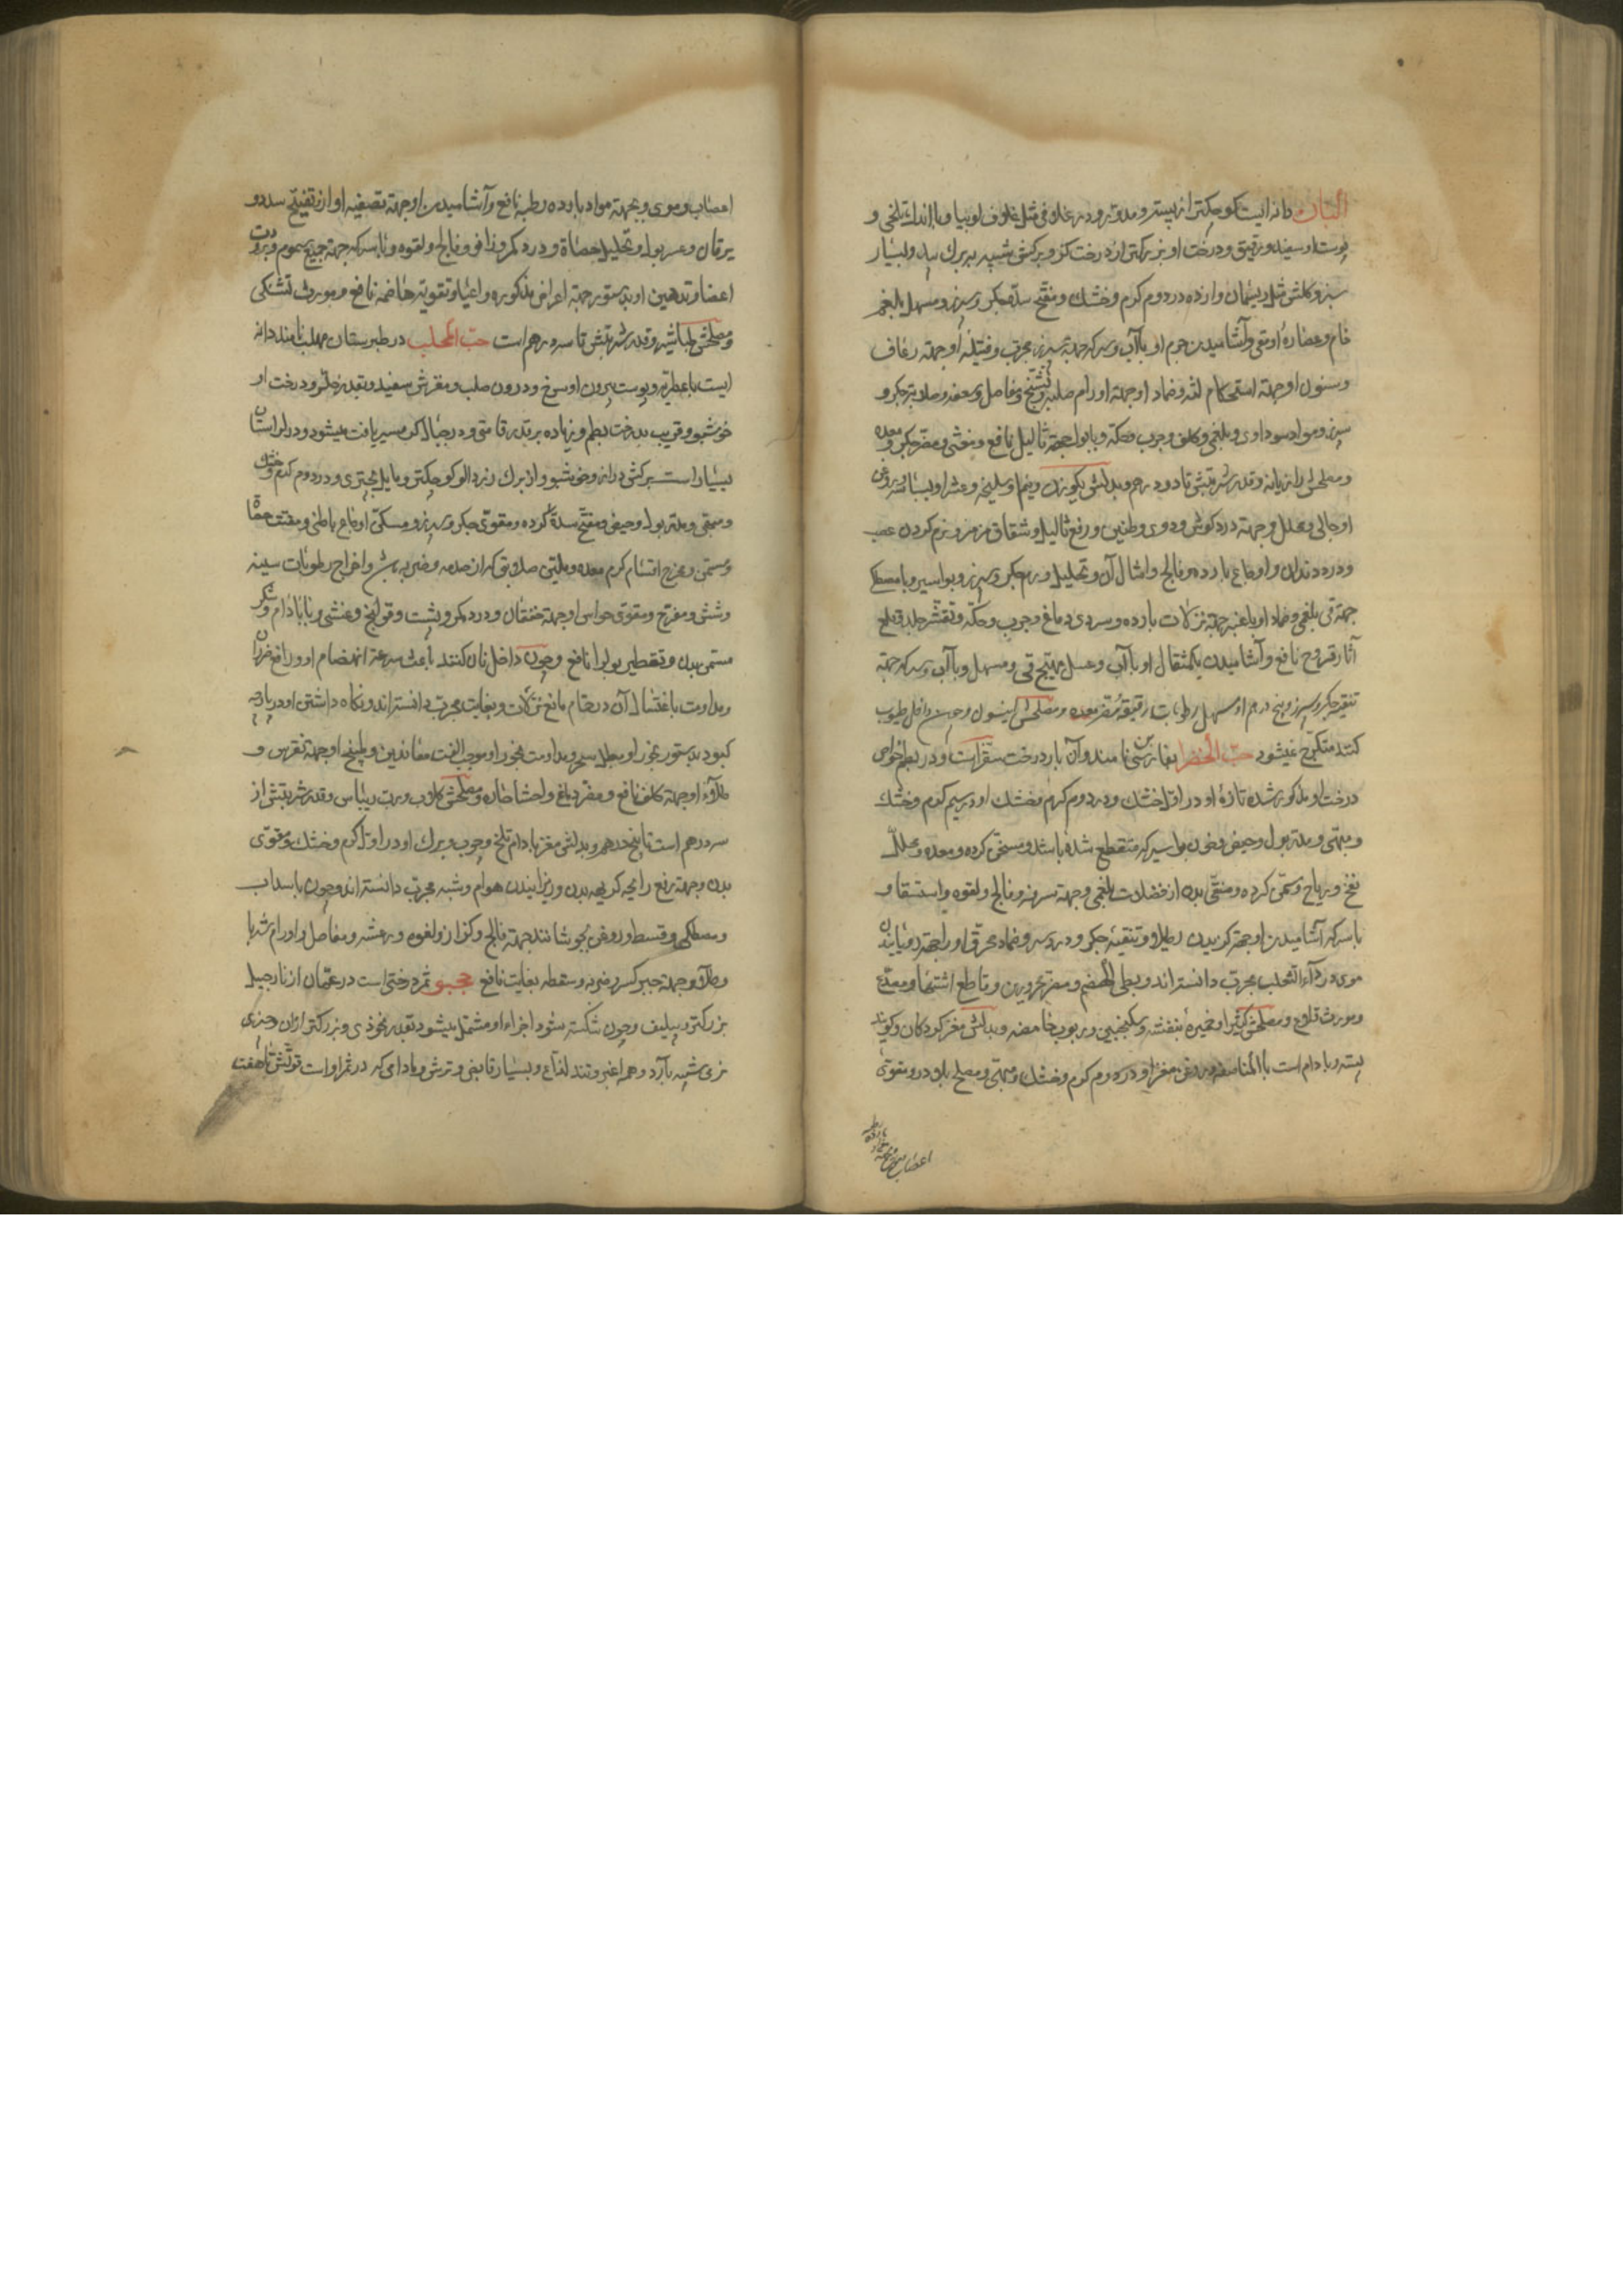 البان دانه ایست کوچکتر از پسته و مدور و در غلافی مثل غلاف لوبیا و با اندک تلخی و
پوست او سفید و رقیق و درخت او بزرکتر از درخت کز و برکش شبیه به برک بید و بسیار
سبز و کلش مثل ریسمان وارده در دوم کرم و خشک و مفتح سده جکر و سپرز و مسهل بلغم
خام و عصاره او قی و آشامیدن جرم او با آب و سرکه جهة سپرز مجرب و فتیله او جهة رعاف
و سنون او جهة استحکام لثه و ضماد او جهة اورام صلبه و تشنج و مفاصل و سعفه و صلابة جکر و
سپرز و مواد سوداوی و بلغمی و کلف و جرب و حکه و با بول جهة ثآلیل نافع و مغثی و مضر جکر و معده
و مصلحش رازیانه و قدر شربتش تا دو درهم و بدلش یکوزن و نیم او سلیخه و عشر او بسباسه و روغن
او جالی و محلل و جهة درد کوش و دوی و طنین و رفع ثآلیل و شقاق مزمن و نرم کردن عصب
و درد دندان و اوجاع بارده و فالج و امثال آن و تحلیل ورم جکر و سپرز و بواسیر و با مصطکی
جهة قی بلغمی و ضماد او با عنبر جهة نزلات بارده و سردی دماغ و جرب و حکه و تقشر جلد و قلع
آثار قروح نافع و آشامیدن یکمثقال او با آب و عسل مهیج قی و مسهل و با آب و سرکه جهة
تنقیه جکر و سپرز و پنج درهم او مسهل رطوبات رقیقه و مضر معده و مصلحش انیسون و چون داخل طیوب
کنند متکرج نمیشود حب الخضرا بفارسی بن نامند و آن بار درخت سقزاست و در بطم خواص
درخت او مذکور شده تازه او در اول خشک و در دوم کرم و خشک او در سیم کرم و خشک
و مبهی و مدر بول و حیض و خون بواسیر که منقطع شده باشد و مسخن کرده و معده و محلل
نفخ و ریاح و مسمن کرده و منقی بدن از فضلات بلغمی و جهة سرفه و فالج و لقوه و استسقا و
با سرکه آشامیدن او جهة کزیدن رتیلا و تنقیه جکر و درد سر و ضماد محرق او را جهة رویانیدن
موی در داء الثعلب مجرب دانسته اند و بطی الهضم و مضر محرورین و قاطع اشتها و مصدع
و مورث قلاع و مصلحش کتیرا و خمیره بنفشه و سکنجبین و ربوب حامضه و بدلش مغز کردکان و کویند
پسته و بادام است بالمناصفه و روغن مغز او در دوم کرم و خشک و مبهی و مصلح باد و درو مقوی
اعصاب و موی و جهة مواد بارده رطبه
اعصاب و موی و جهة مواد بارده رطبه نافع و آشامیدن او جهة تصفیه اواز و تفتیح سدد و
یرقان و عسر بول و تحلیل حصاة و درد کمر و زانو و فالج و لقوه و با سرکه جهة جمیع سموم و برودت
اعضا و تدهین او بدستور جهة اعراض مذکوره و اعیا و تقویة هاضمه نافع و مورث تشنکی
و مصلحش طباشیر و قدر شربتش تا سه درهم است حب المحلب در طبرستان مهلب نامند دانه
ایست با عطریه و پوست بیرون او سرخ و درون صلب و مغزش سفید و بقدر جلز و درخت او
خوشبو و قریب بدرخت بطم و زیاده بر قدر قامتی و در جبال کرمسیر یافت میشود و در لرستان
بسیار است برکش دراز و خوشبو و از برک زردالو کوچکتر و مایل بچتری و در دوم کرم و خشک
و منقی و مدر بول و حیض و مفتح سده کرده و مقوی جکر و سپرز و مسکن اوجاع باطنی و مفتت حصاة
و مسمن و مخرج اقسام کرم معده و ملین صلابتی که از صدمه و ضربه باشد و اخراج رطوبات سینه
و شش و مفرح و مقوی حواس و جهة خفقان و درد کمر و پشت و قولنج و غشی و با بادام و شکر
مسمن بدن و تقطیر بول را نافع و چون داخل نان کنند باعث سرعة انهضام او و رافع ضرر آن
و مداومت باغتسال آن در حمام مانع نزلات و بغایت مجرب دانسته اند و نکاه داشتن او در پارچه
کبود بدستور بخور او مبطل سحر و مداومت بخور او موجب الفت معاندین و طبیخ او جهة نقرس و
طلاء او جهة کلف نافع و مضر دماغ و احشا حاره و مصلحش کلاب و رب ریباس و قدر شربتش از
سه درهم است تا پنج درهم و بدلش مغز بادام تلخ و چوب و برک او در اول کرم و خشک و مقوی
بدن و جهة رفع رایحه کریهه بدن و کریزانیدن هوام و شپه مجرب دانسته اند و چون با سداب
و مصطکی و قسط او در روغن بجوشانند جهة فالج و کزاز و لقوه و رعشه و مفاصل و اورام شربا
و طلاء و جهة جبر کسر و ضربه و سقطه بغایت نافع ثمر درختی است در عمان از نارجیل
بزرکتر و بی لیف و چون شکسته شود اجزاء او مشتمل میشود بقدر نخودی و بزرکتر از آن و چیزی
نرم شبیه بآرد و هم اغبر و تند لذاع و بسیار قابض و ترش و مادامی که در ثمر اوست قوتش تا هفت